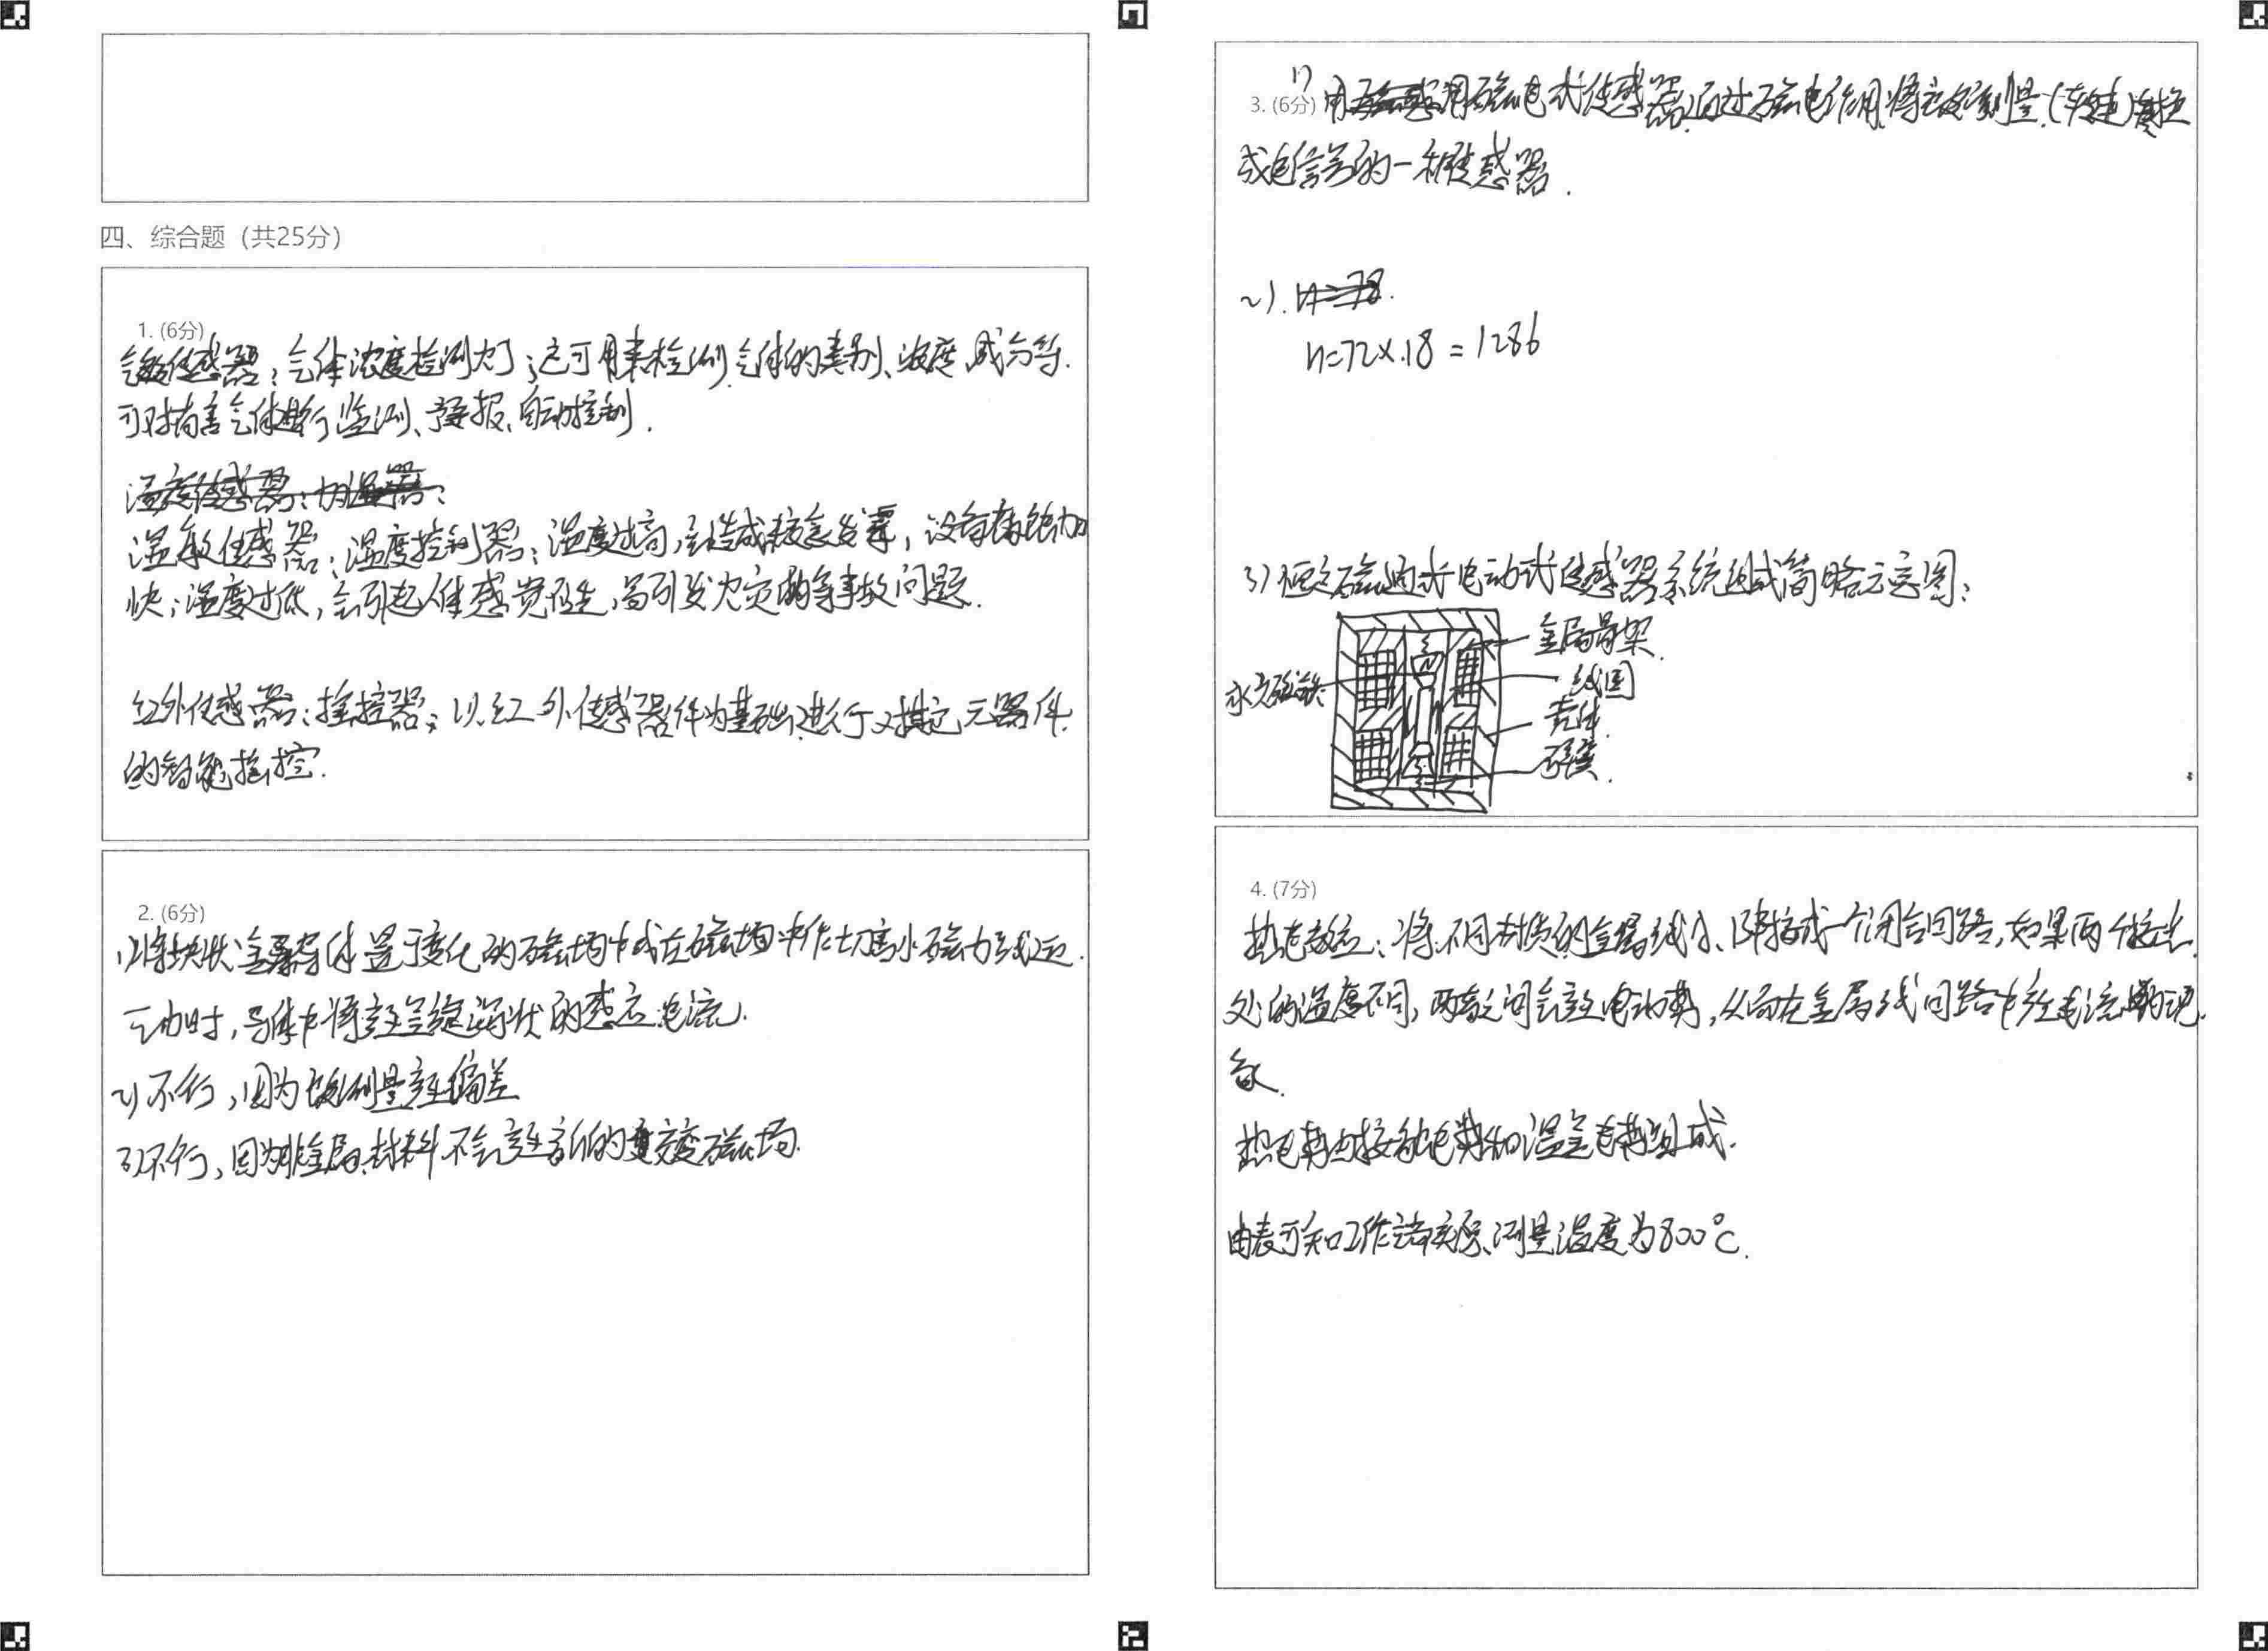 四、综合题（共25分）
1. (6分)
气敏传感器：气体浓度检测灯；这可用来检测气体的类别、浓度、成分等.
可对有害气体进行监测、预报、自动控制.
温度传感器：
温敏传感器：温度控制器：温度过高，会造成 ，设备 加
快；温度过低，会引起人体感觉 ，易引发火灾 等事故问题.
红外传感器：摇控器：以红外传感器件为基础进行对其它元器件
的智能摇控.
2. (6分)
1)将块状金属导体置于变化的磁场中或在磁场中作切割小磁力线运
动时，导体中将产生呈旋涡状的感应电流.
2)不行，因为 测量产生偏差
3)不行，因为非金属材料不会产生新的交变磁场.
1)
3. (6分)
用磁电式传感器通过磁电作用将被测量(转速)转换
成电信号的一种传感器.
2).
n=72×18=1286
3)恒定磁通式电动式传感器系统组成简略示意图：
金属骨架
线圈
永久磁铁
壳体
弹簧.
4. (7分)
热电效应：将不同材质的金属线A、B串接成一个闭合回路，如果两个接点
处的温度不同，两者之间会产生电动势，从而在金属线回路中产生电流的现
象.
热电势由接触电势和温差电势组成.
由表可知工作端实际测量温度为800℃.